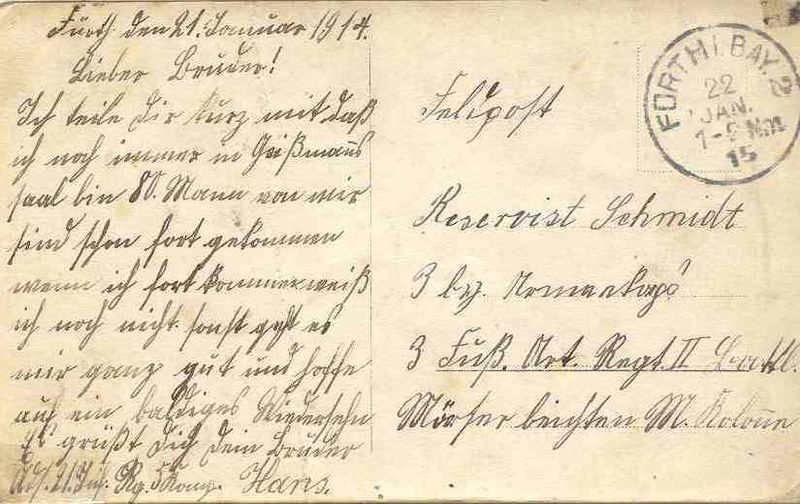 Fürth den 21. Januar 1914.
Lieber Bruder!
Ich teile Dir kurz mit, daß
ich noch immer in Geißmanns
saal bin 80. Mann von wir
sind schon fort gekommen
wenn ich fort komme weiß
ich noch nicht. sonst geht es
mir ganz gut und hoffe
auf ein baldiges Wiedersehn
Es grüßt Dich Dein Bruder
21. Inf. Rg. Komp. Hans.
FÜRTH I. BAY. 2
22
JAN.
1-2 Nm
15
Feldpost
Reservist Schmidt
3 by. Armeekorps
3 Fuß. Art. Regt. II
Mörser leichten M. Kolonne